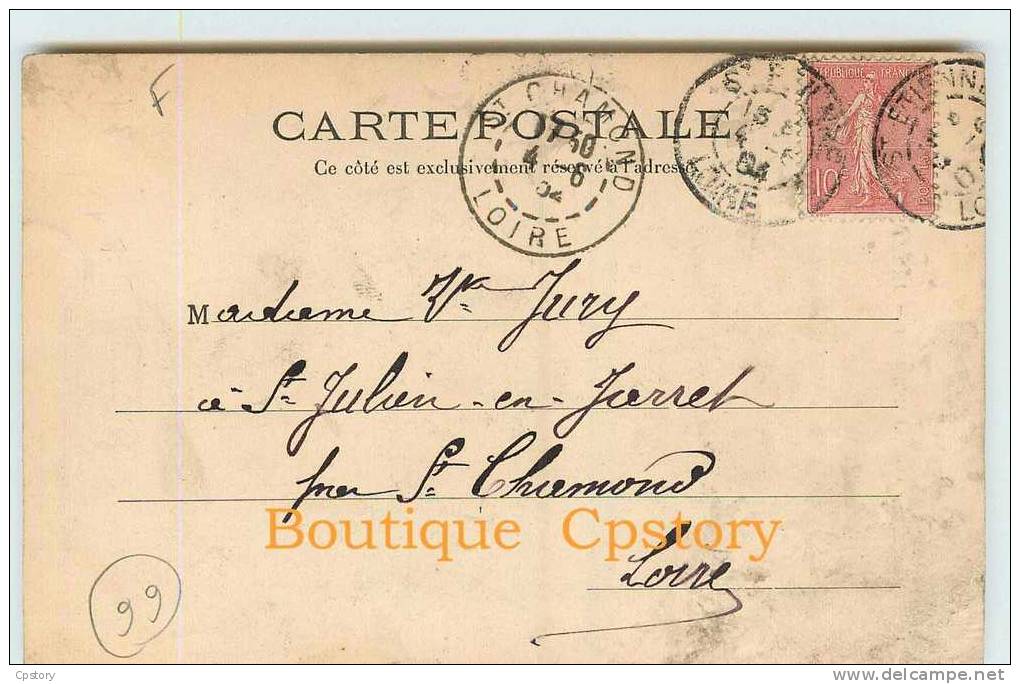 F
CARTE POSTALE
Ce côté est exclusivement réservé à l'adresse
ST CHAMOND
4 6
04
LOIRE
ST ETIENNE
04
LOIRE
REPUBLIQUE FRANÇAISE
10
ST ETIENNE
Madame Vve Jury
à St Julien-en-Jarret
par St Chamond
Loire
Boutique Cpstory
99
Cpstory
delcampe.net